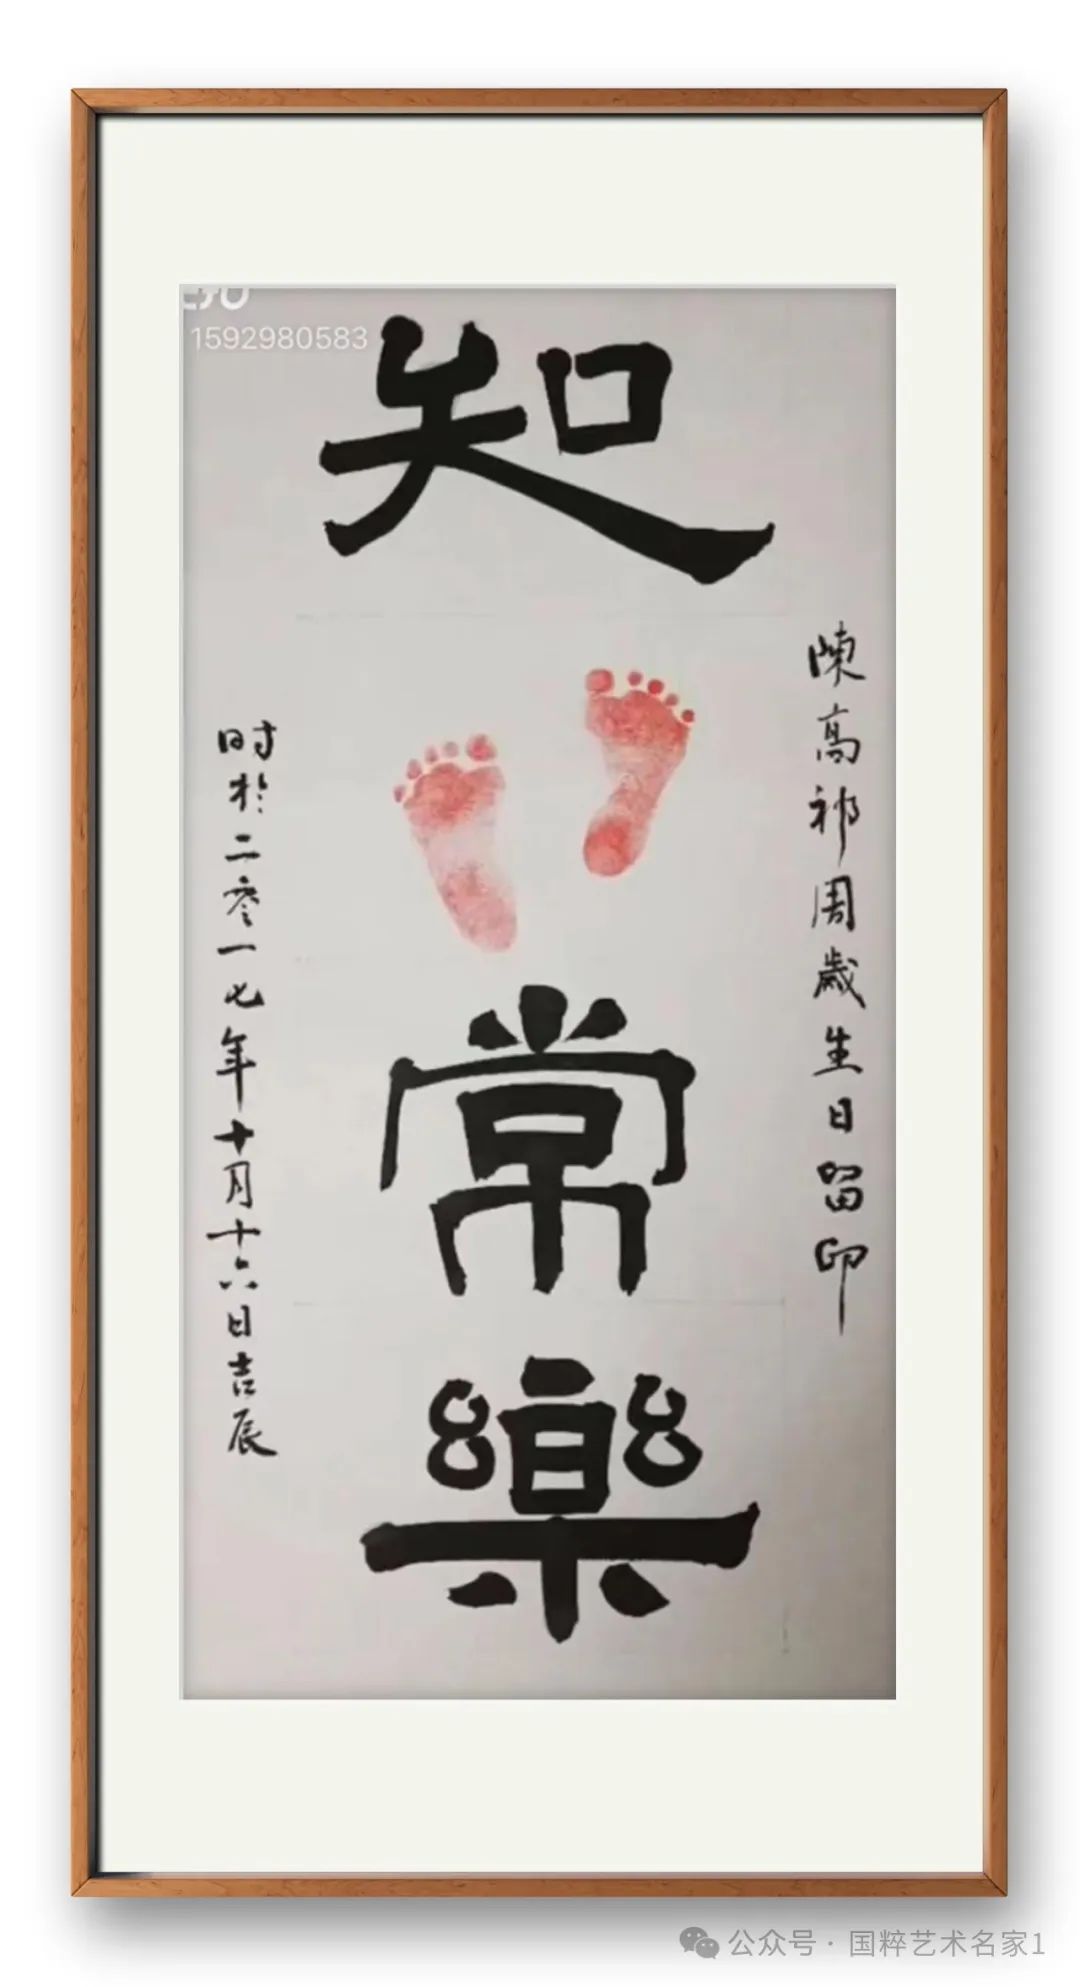 1592980583
知
常
樂
陳高祁周歲生日留印
时於二零一七年十月十六日吉辰
公众号 · 国粹艺术名家1